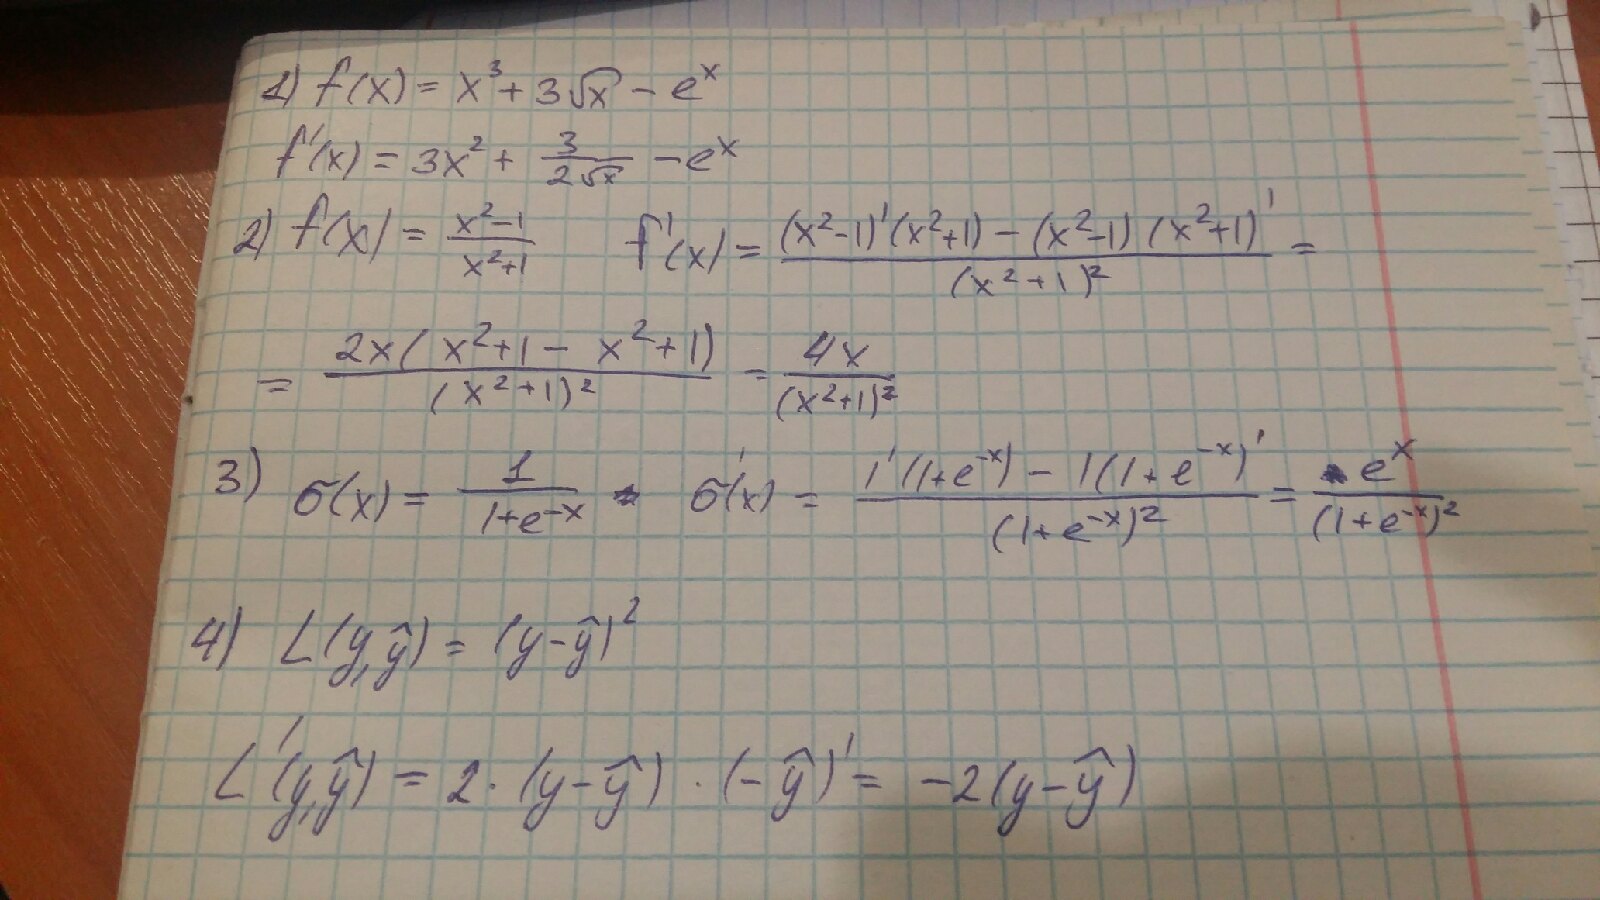 1) f(x) = x³ + 3√x - eˣ
f'(x) = 3x² + 3/(2√x) - eˣ
2) f(x) = (x²-1)/(x²+1) f'(x) = ((x²-1)'(x²+1) - (x²-1)(x²+1)')/(x²+1)² =
= 2x(x²+1 - x²+1)/(x²+1)² = 4x/(x²+1)²
3) σ(x) = 1/(1+e⁻ˣ) σ'(x) = (1'(1+e⁻ˣ) - 1(1+e⁻ˣ)')/(1+e⁻ˣ)² = eˣ/(1+e⁻ˣ)²
4) L(y,ŷ) = (y-ŷ)²
L'(y,ŷ) = 2·(y-ŷ)·(-ŷ)' = -2(y-ŷ)